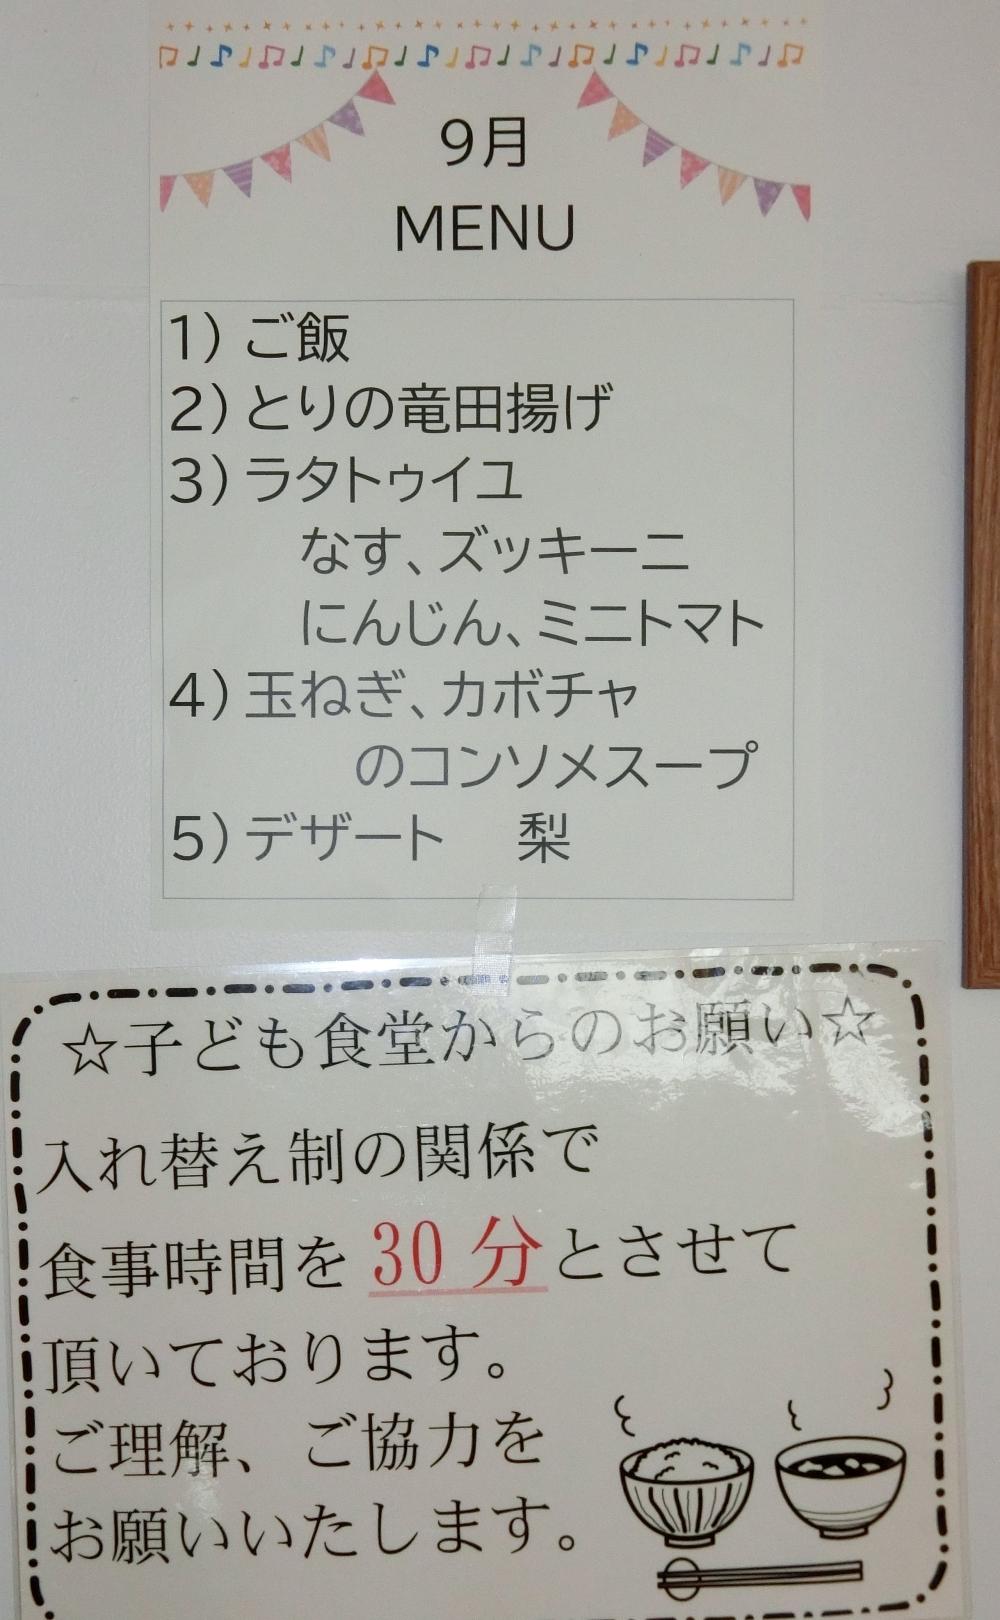 9月
MENU
1）ご飯
2）とりの竜田揚げ
3）ラタトゥイユ
なす、ズッキーニ
にんじん、ミニトマト
4）玉ねぎ、カボチャ
のコンソメスープ
5）デザート　梨
☆子ども食堂からのお願い☆
入れ替え制の関係で
食事時間を 30 分とさせて
頂いております。
ご理解、ご協力を
お願いいたします。